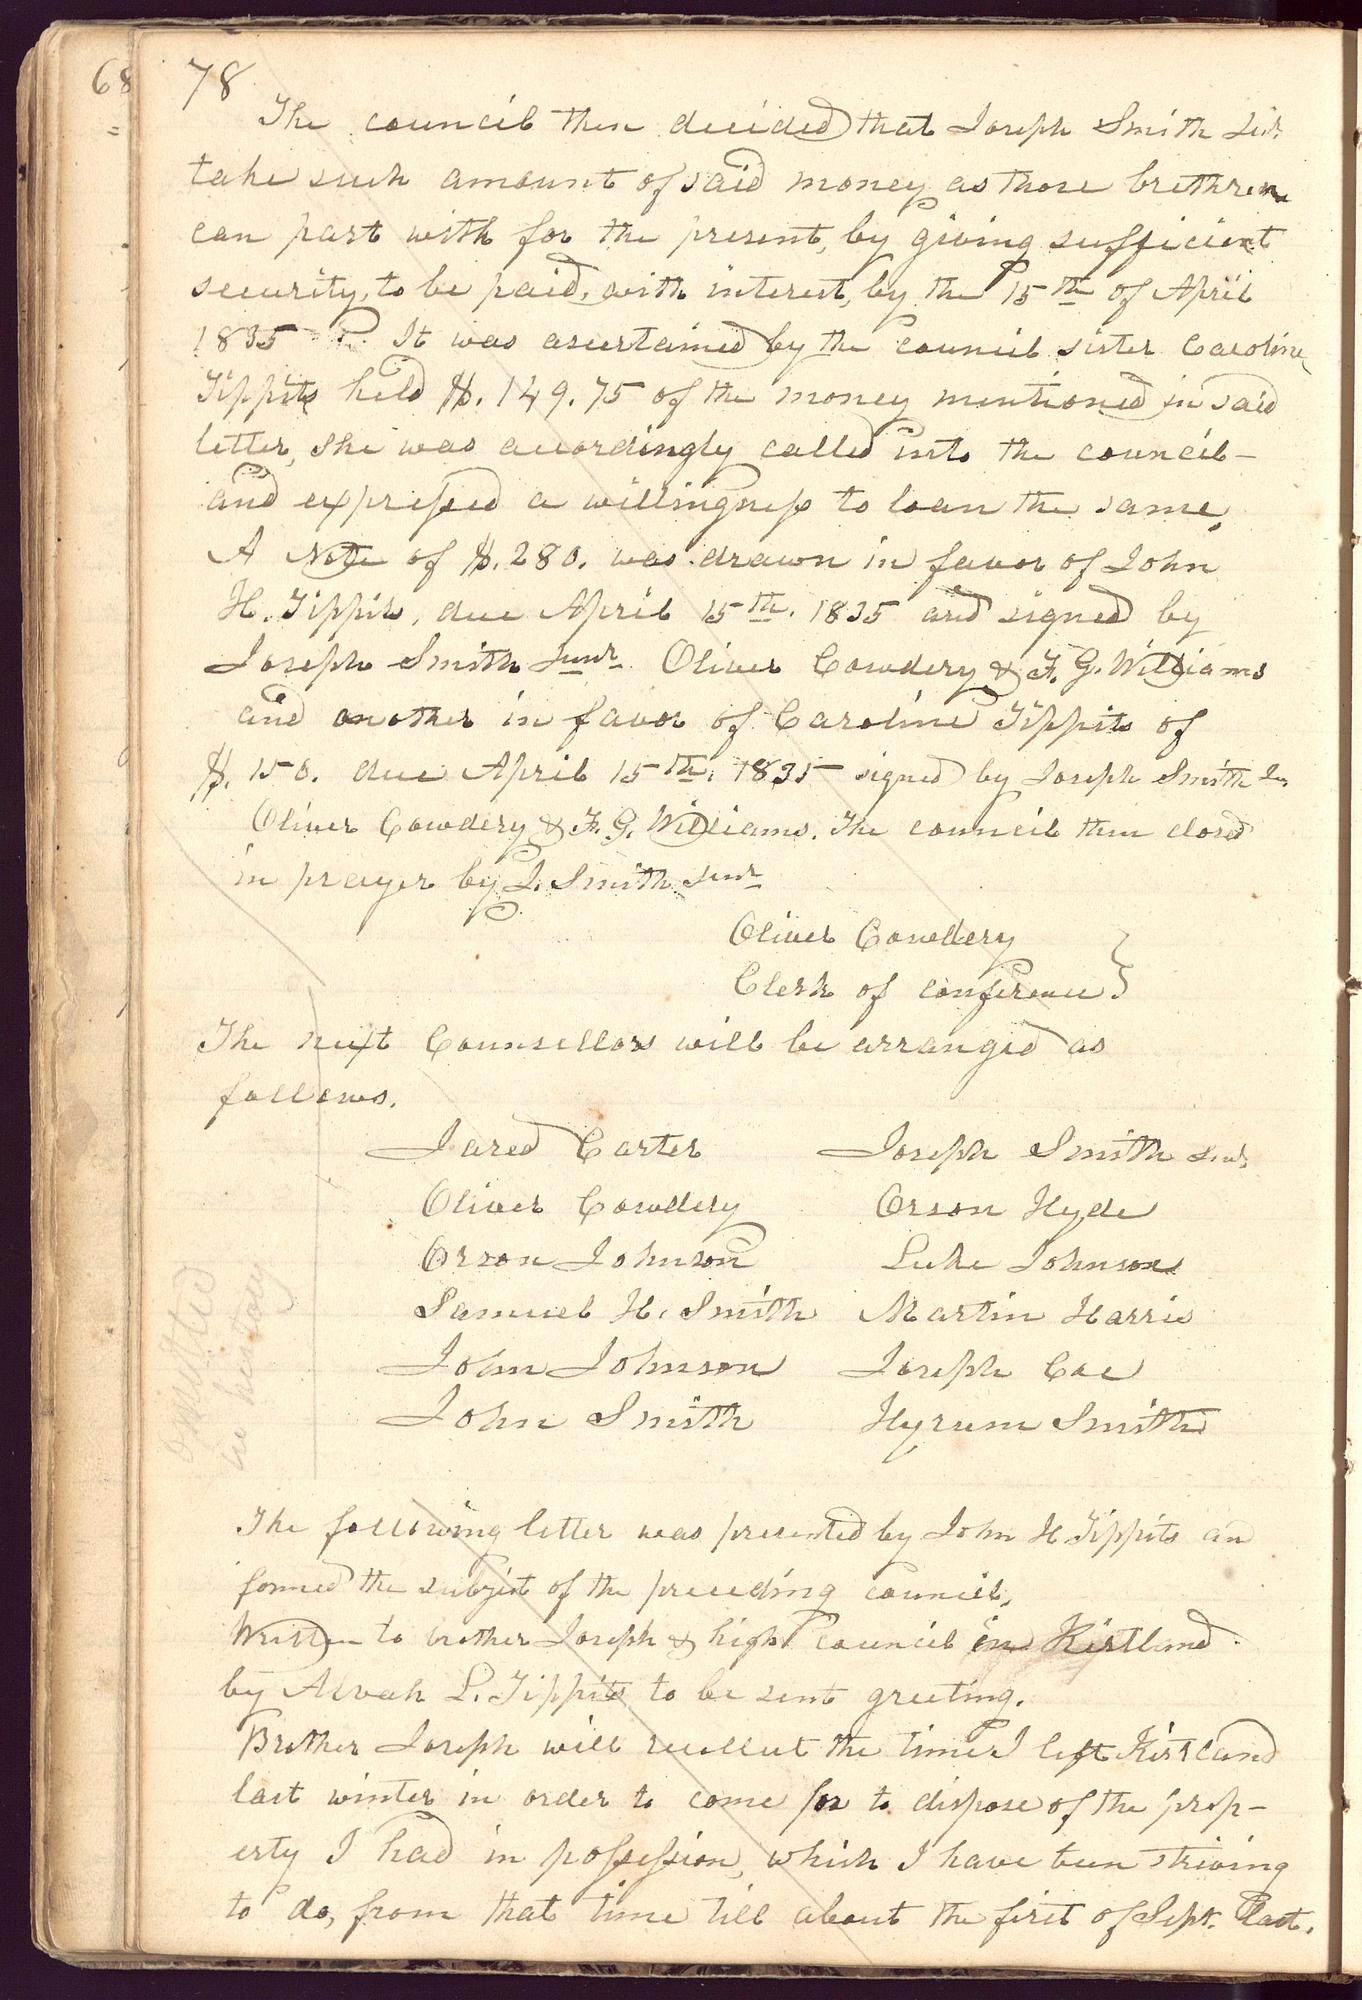 68
78
The council then decided that Joseph Smith Jun.
take such amount of said money as those brethren
can part with for the present, by giving sufficient
security, to be paid, with interest, by the 15th of April
1835 It was ascertained by the council sister Caroline
Tippits held $. 149.75 of the money mentioned in said
letter, she was accordingly called into the council-
and expressed a willingness to loan the same.
A Note of $. 280. was drawn in favor of John
H. Tippits, due April 15th. 1835 and signed by
Joseph Smith Junr. Oliver Cowdery & F. G. Williams
and another in favor of Caroline Tippits of
$. 150. due April 15th. 1835 signed by Joseph Smith Jun.
Oliver Cowdery & F. G. Williams. The council then closed
in prayer by J. Smith Junr
Oliver Cowdery }
Clerk of conference }
The next Counsellors will be arranged as
follows.
Jared Carter Joseph Smith Sen.
Oliver Cowdery Orson Hyde
Orson Johnson Luke Johnson
Samuel H. Smith Martin Harris
John Johnson Joseph Coe
John Smith Hyrum Smith
omitted
in history
The following letter was presented by John H Tippits an
formed the subject of the preceeding council.
Written to brother Joseph & high council in Kirtland.
by Alvah L. Tippits to be sent greeting.
Brother Joseph will recollect the time I left Kirtland
last winter in order to come for to dispose of the prop-
erty I had in possession, which I have been striving
to do, from that time till about the first of Sept. last.